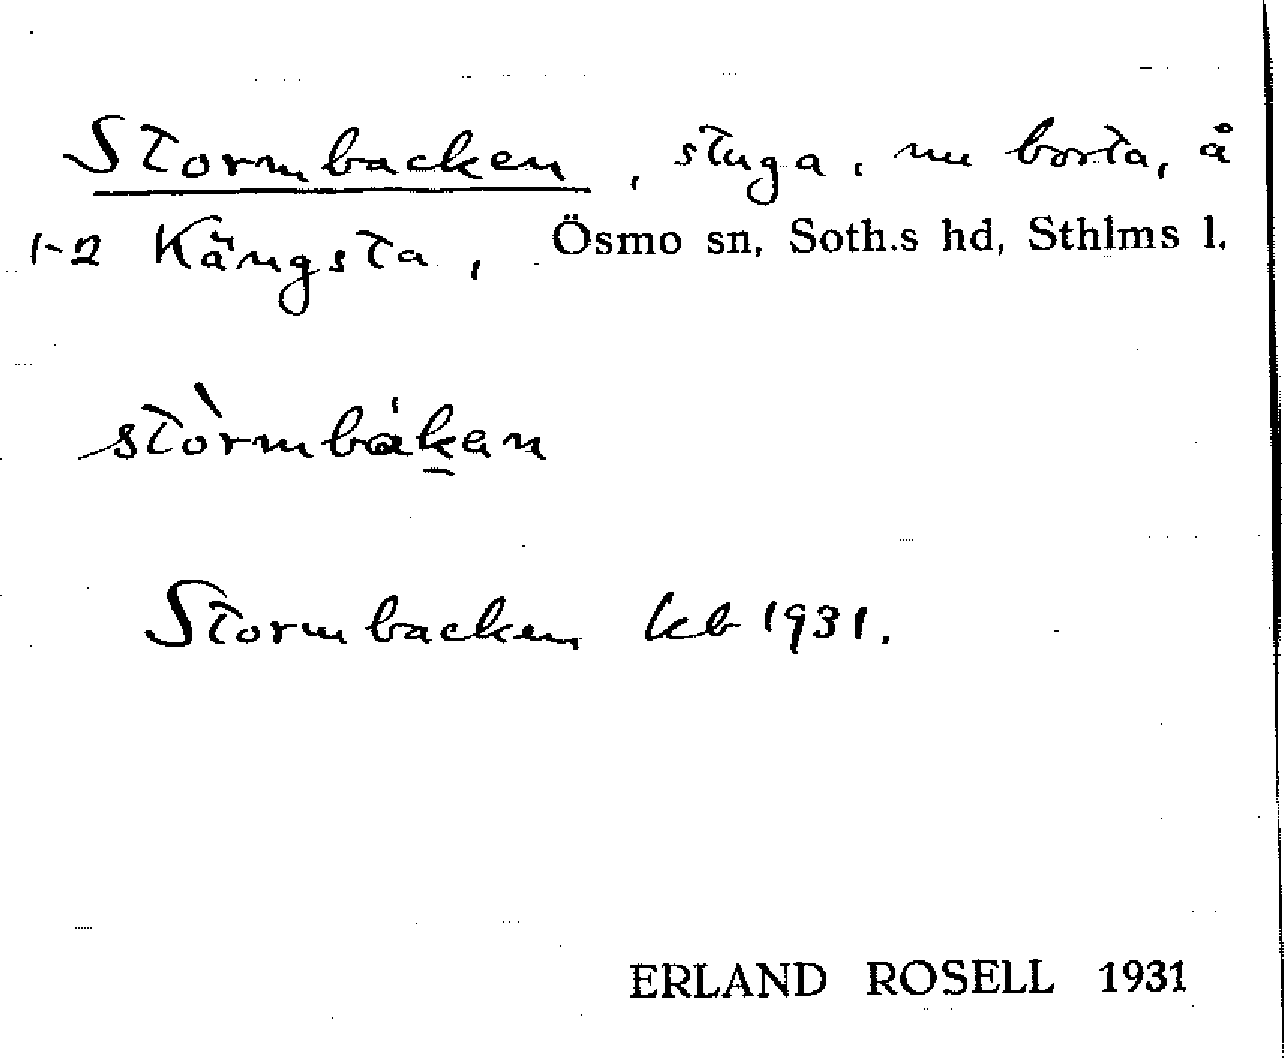 Stormbacken, stuga, nu borta, å
1-2 Kängsta, Ösmo sn, Soth.s hd, Sthlms l.
stòrmbák̲an
Stormbacken kb 1931.
ERLAND ROSELL 1931